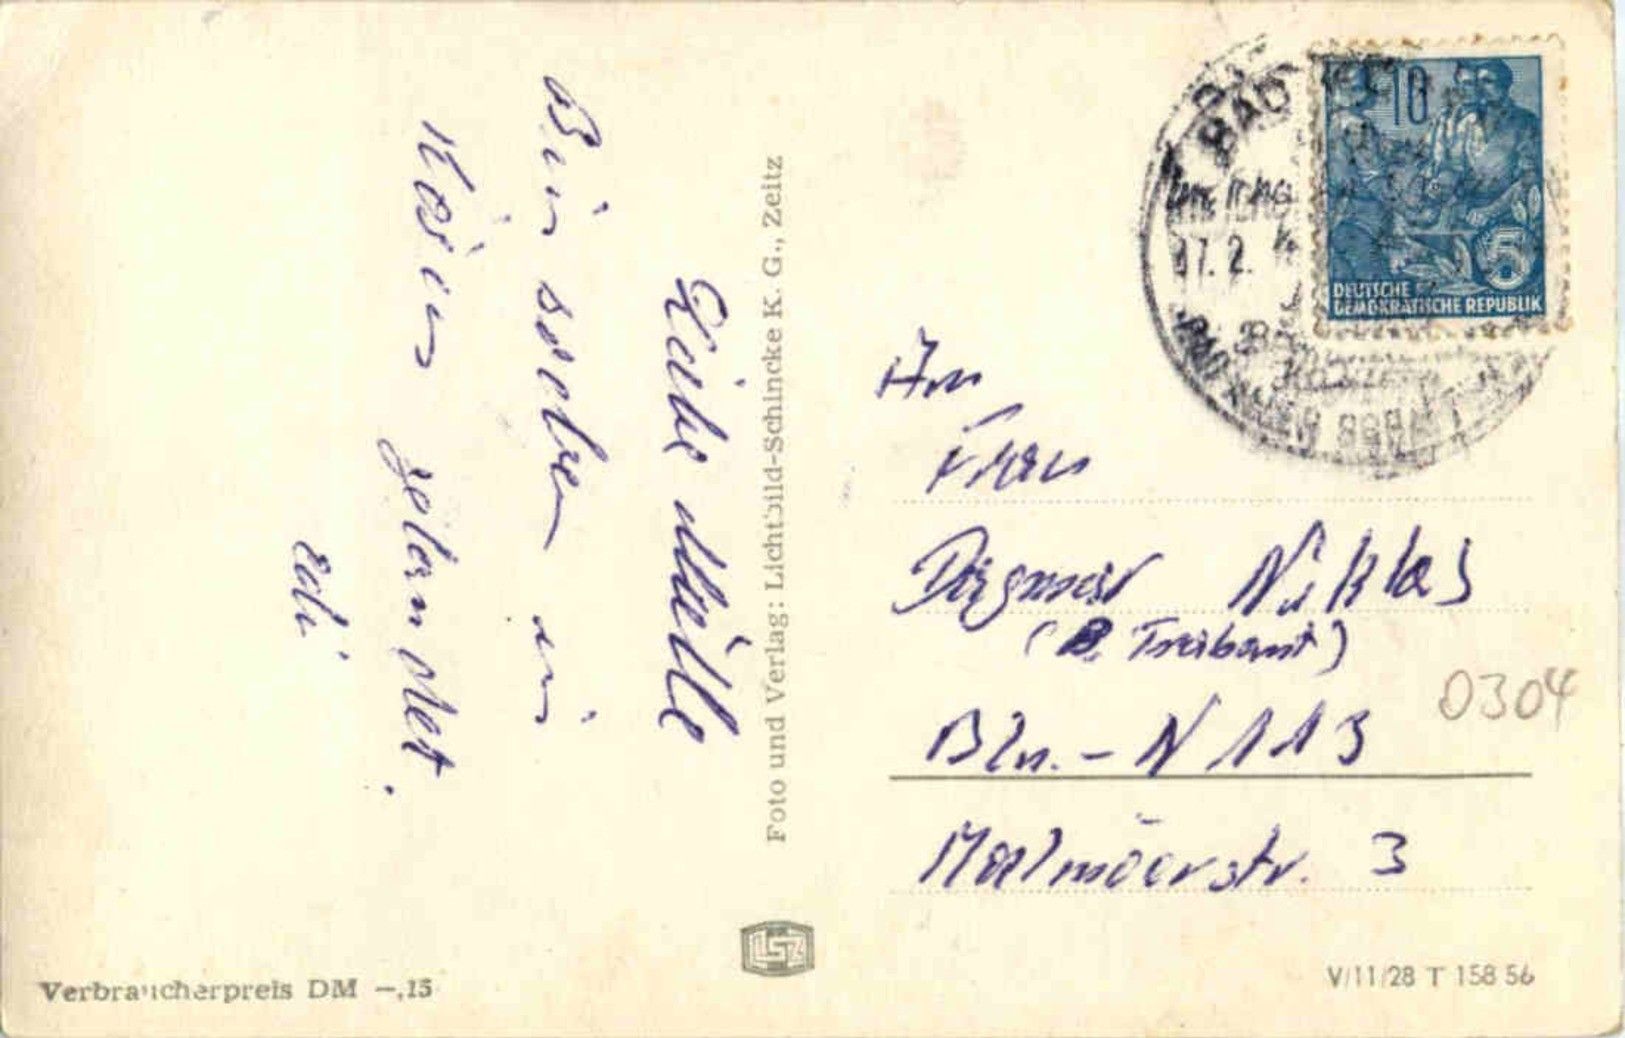 Liebe Muille
Bin soeben in
Kösen gelandet.
Edi
Foto und Verlag: Lichtbild-Schincke K. G., Zeitz
Verbraucherpreis DM —,15
BAD
17. 2.
10
5
DEUTSCHE
DEMOKRATISCHE REPUBLIK
An
Frau
Dagmar Niklas
(B. Treibant)
Bln.-N 113
Malmöerstr. 3
0304
V/11/28 T 158 56